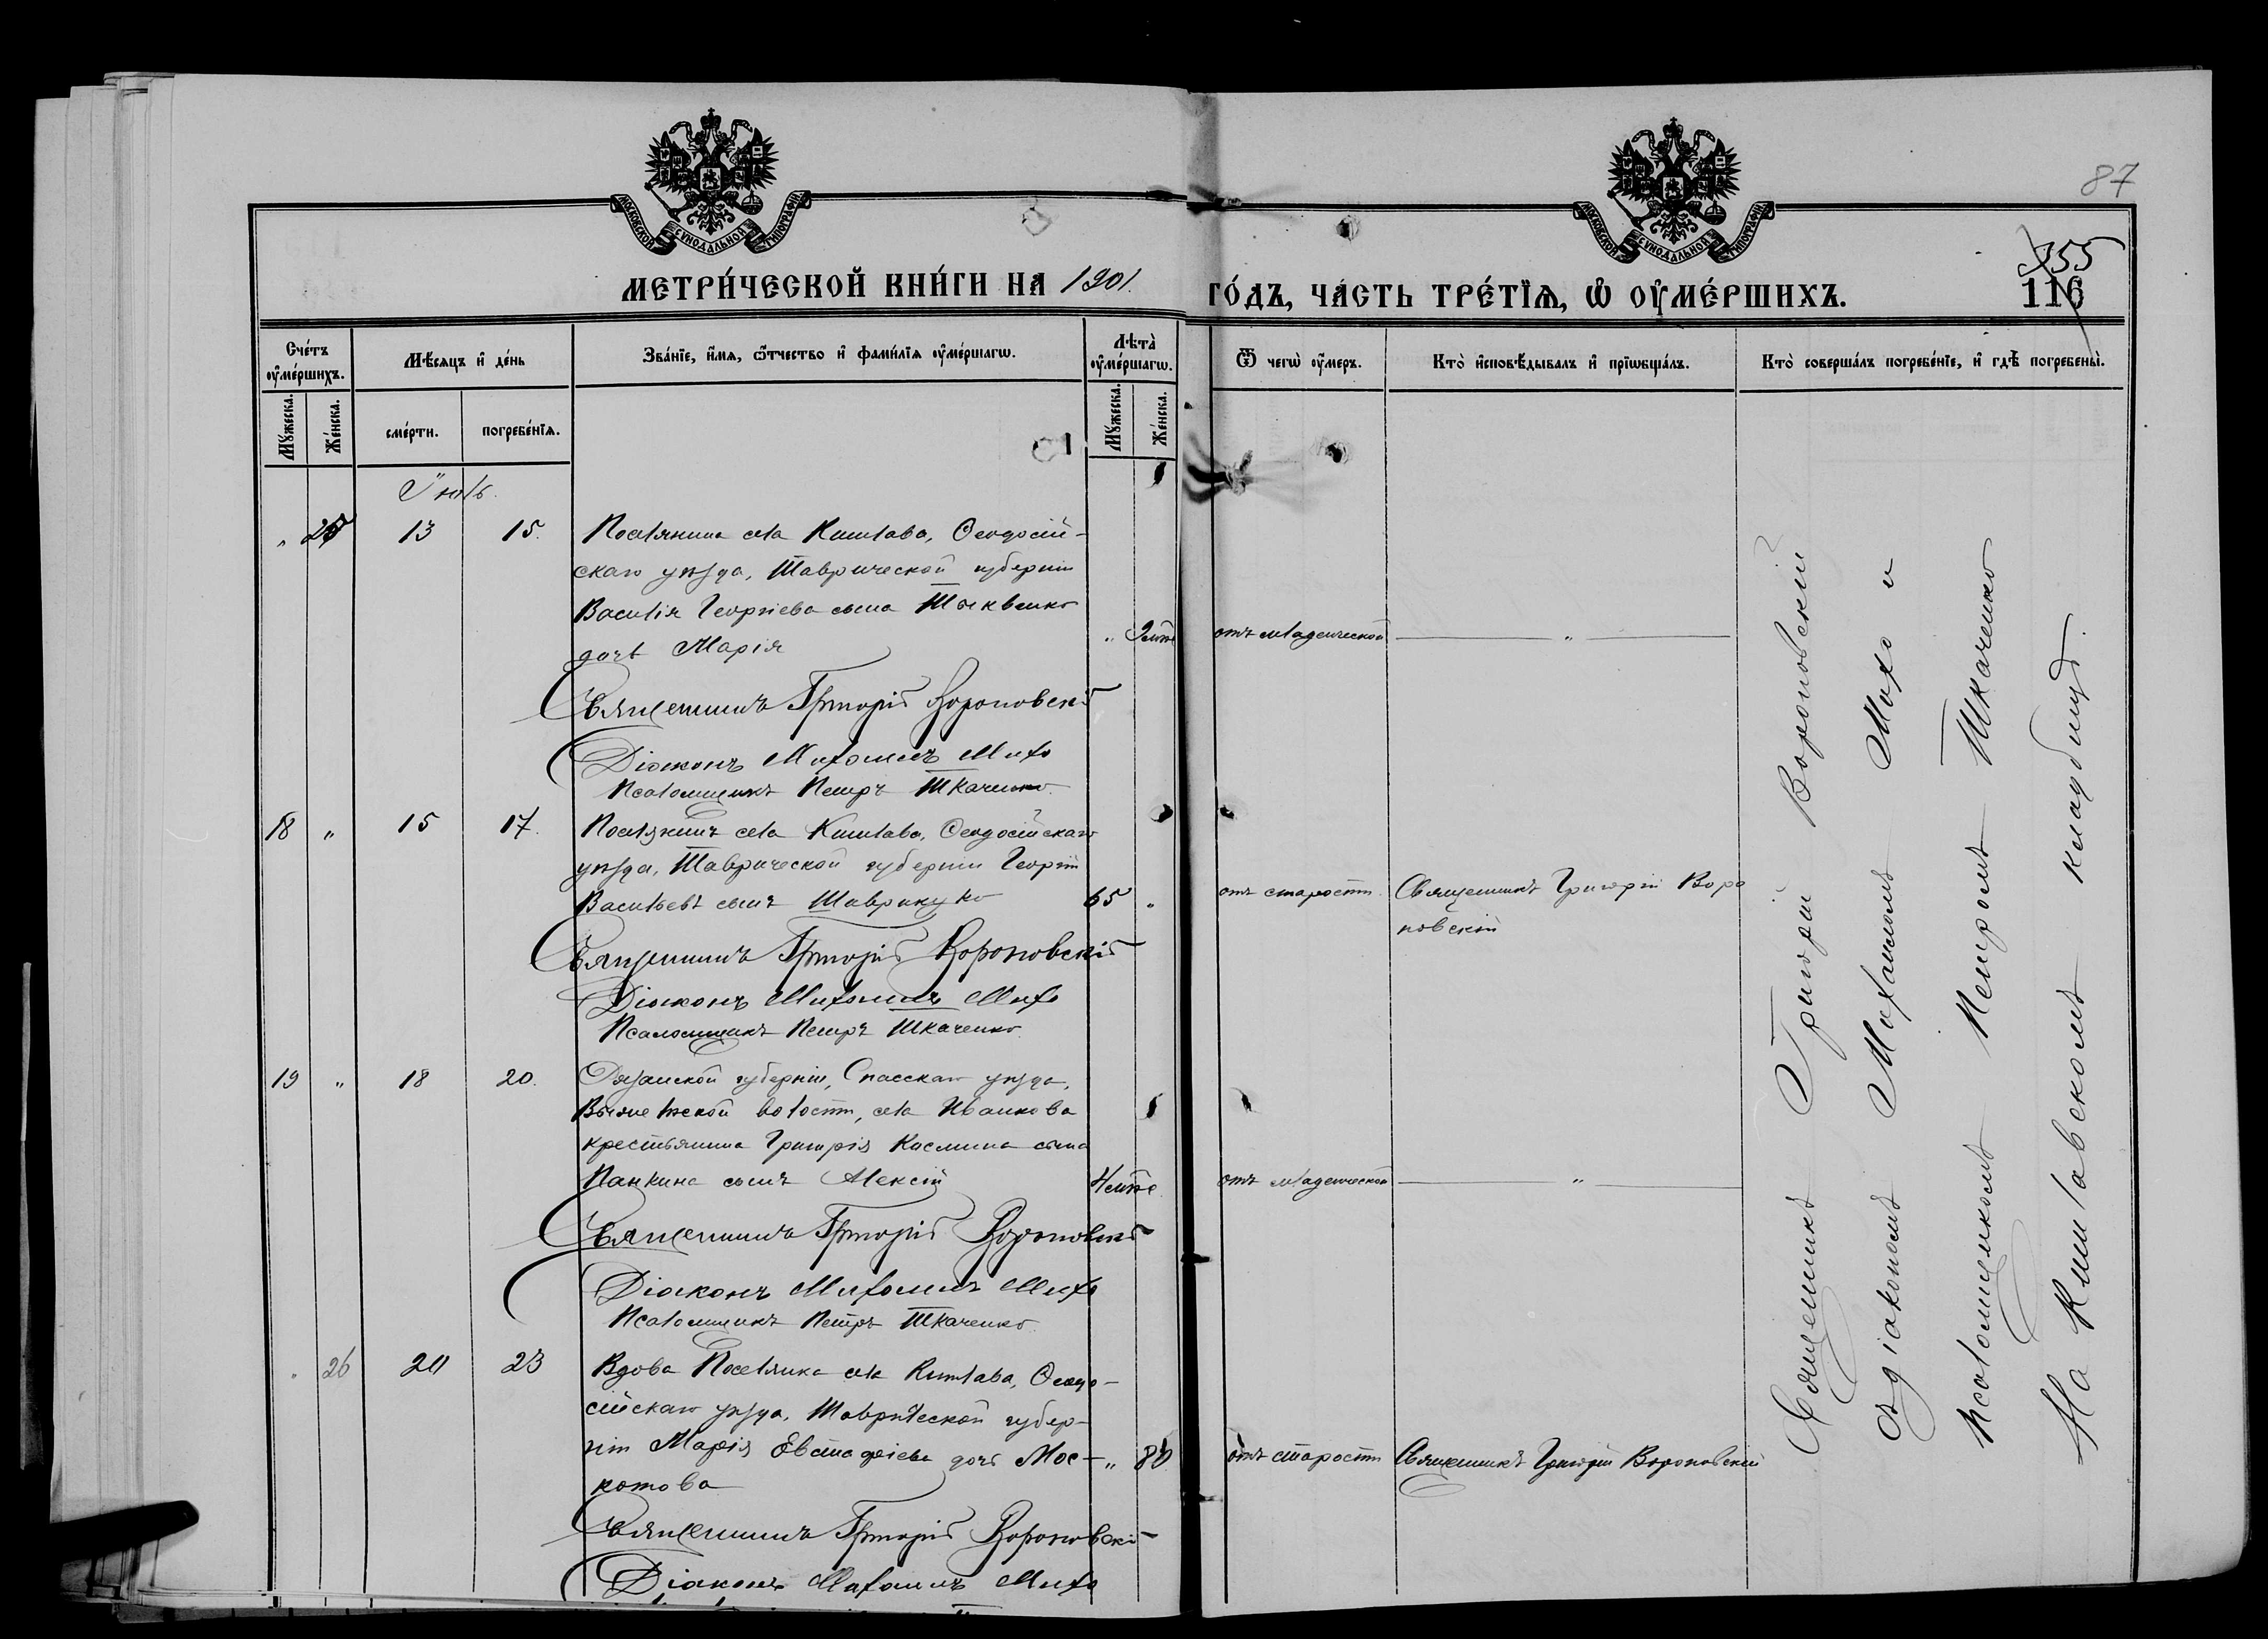 87
МОСКОВСКОЙ СѴНОДАЛЬНОЙ ТИПОГРАФІИ
МОСКОВСКОЙ СѴНОДАЛЬНОЙ ТИПОГРАФІИ
МЕТРИ́ЧЕСКОЙ КНИ́ГИ НА 1901 ГО́ДЪ, ЧА́СТЬ ТРЕ́ТЇѦ, Ѡ҆ ОУ҆МЕ́РШИХЪ.
355
116
Сче́тъ оу҆ме́ршихъ.
Мѣ́сяцъ и҆ де́нь
Зва́нїе, и҆́мѧ, ѻ҆́тчество и҆ фами́лїѧ оу҆ме́ршагѡ.
Лѣта̀ оу҆ме́ршагѡ.
Ѿ чегѡ̀ оу҆́меръ.
Кто̀ и҆сповѣ́дывалъ и҆ прїѡбща́лъ.
Кто̀ соверша́лъ погребе́нїе, и҆ гдѣ̀ погребены̀.
Му́жеска.
Же́нска.
сме́рти.
погребе́нїѧ.
Му́жеска.
Же́нска.
Іюль.
" 25 13 15. Поселянина села Кишлава, Ѳеодосій-
скаго уѣзда, Таврической губерніи
Василія Георгіева сына
дочь Марія " отъ младенческой "
Священникъ Григорій Вороновскій
Діаконъ Михаилъ Михо
Псаломщикъ Петръ Ткаченко
18 " 15 17. Поселянинъ села Кишлава, Ѳеодосійскаго
уѣзда, Таврической губерніи Георгій
Васильевъ сынъ 65 " отъ старости Священникъ Григорій Воро
новскій
Священникъ Григорій Вороновскій
Діаконъ Михаилъ Михо
Псаломщикъ Петръ Ткаченко
19 " 18 20. Рязанской губерніи, Спасскаго уѣзда,
волости, села Иванкова
крестьянина Григорія Касмина сына
Панкина сынъ Алексій отъ младенческой "
Священникъ Григорій Вороновскій
Діаконъ Михаилъ Михо
Псаломщикъ Петръ Ткаченко
" 26 20 23 Вдова Поселянка села Кишлава, Ѳеодо-
сійскаго уѣзда, Таврической губер-
ніи Марія Евстафіева дочь Мос- " 80 отъ старости Священникъ Григорій Вороновскій
котова
Священникъ Григорій Вороновскій
Діаконъ Михаилъ Михо
Священникъ Григорій Вороновскій
съ діакономъ Михаиломъ Михо и
псаломщикомъ Петромъ Ткаченко
На Кишлавскомъ кладбищѣ.